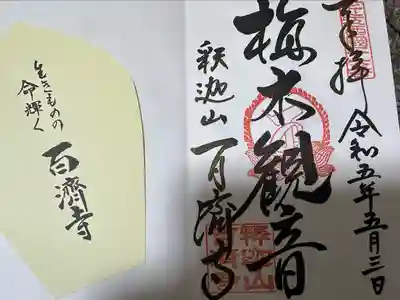 奉拝
令和五年五月三日
植木観音
釈迦山
百済寺
生きものの
命輝く
百濟寺